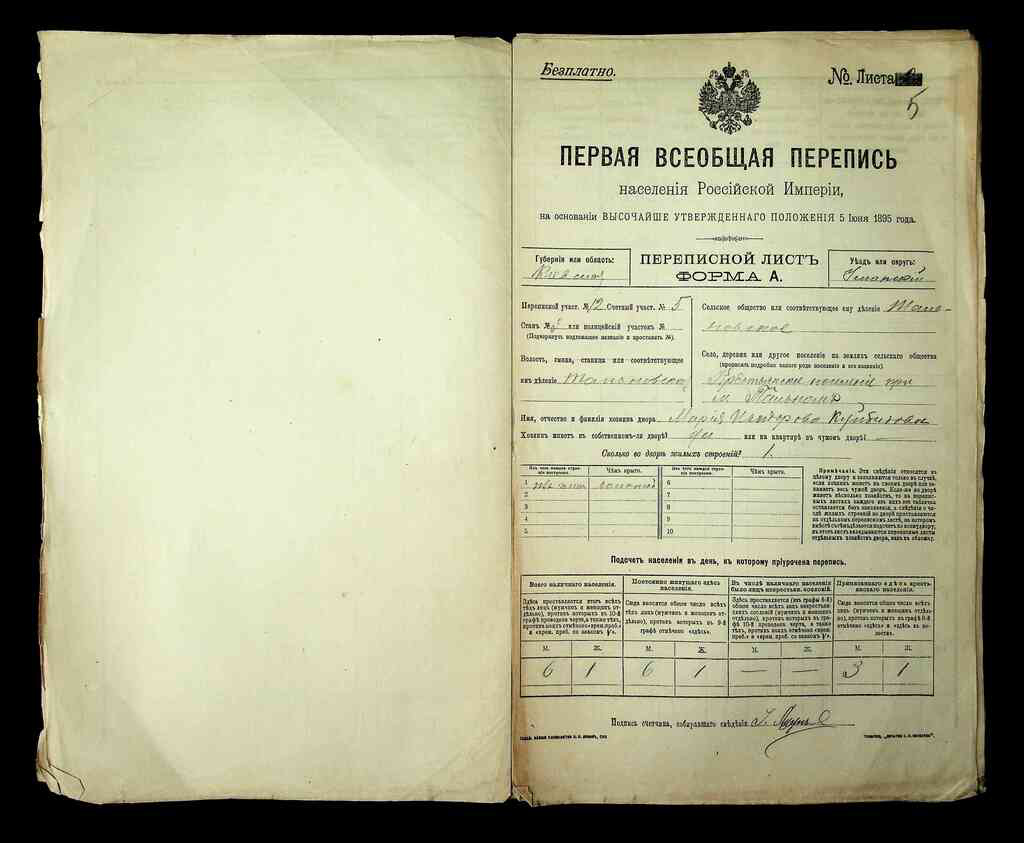 Безплатно.
№ Листа
5
ПЕРВАЯ ВСЕОБЩАЯ ПЕРЕПИСЬ
населенія Россійской Имперіи,
на основаніи ВЫСОЧАЙШЕ УТВЕРЖДЕННАГО ПОЛОЖЕНІЯ 5 Іюня 1895 года.
Губернія или область:
Кіевская
ПЕРЕПИСНОЙ ЛИСТЪ
ФОРМА А.
Уѣздъ или округъ:
Уманскій
Переписной участ. № 12 Счетный участ. № 5
Станъ № или полицейскій участокъ №
(Подчеркнуть подлежащее названіе и проставить №).
Волость, гмина, станица или соотвѣтствующее
имъ дѣленіе Тальновская
Сельское общество или соотвѣтствующее ему дѣленіе Таль-
новское
Село, деревня или другое поселеніе на земляхъ сельскаго общества
(прописать подробно какого рода поселеніе и его названіе).
Крестьянское поселеніе при
м. Тальномъ
Имя, отчество и фамилія хозяина двора Марія
Хозяинъ живетъ въ собственномъ-ли дворѣ? или на квартирѣ въ чужомъ дворѣ? —
Сколько во дворѣ жилыхъ строеній? 1.
Изъ чего каждое строе-
ніе построено. Чѣмъ крыто. Изъ чего каждое строе-
ніе построено. Чѣмъ крыто.
1 соломой 6
2 7
3 8
4 9
5 10
Примѣчаніе. Эти свѣдѣнія относятся къ
цѣлому двору и заполняются только въ случаѣ,
если хозяинъ живетъ на своемъ дворѣ или за-
нимаетъ весь чужой дворъ. Если-же во дворѣ
живетъ нѣсколько хозяйствъ, то на перепис-
ныхъ листахъ каждаго изъ нихъ эта табличка
оставляется безъ заполненія, а свѣдѣнія о чи-
слѣ жилыхъ строеній во дворѣ проставляются
на отдѣльномъ переписномъ листѣ, на которомъ
Подсчетъ населенія въ день, къ которому пріурочена перепись.
Всего наличнаго населенія. Постоянно живущаго здѣсь
населенія. Въ числѣ наличнаго населенія
было лицъ некрестьян. сословій. Приписаннаго здѣсь кресть-
янскаго населенія.
Здѣсь проставляется итогъ всѣхъ
тѣхъ лицъ (мужчинъ и женщинъ от-
дѣльно), противъ которыхъ въ 10-й
графѣ проведена черта, а также тѣхъ,
Сюда вносится общее число всѣхъ
тѣхъ лицъ (мужчинъ и женщинъ от-
дѣльно), противъ которыхъ въ 9-й
графѣ отмѣчено «здѣсь».
Здѣсь проставляется (изъ графы 6-й)
общее число всѣхъ лицъ некрестьян-
скихъ сословій (мужчинъ и женщинъ
отдѣльно), противъ которыхъ въ
графѣ 10-й проведена черта, а также
Сюда вносится общее число всѣхъ
тѣхъ лицъ (мужчинъ и женщинъ отдѣль-
но), противъ которыхъ въ графѣ 8-й
отмѣчено «здѣсь» и «здѣсь въ во-
лости».
М. Ж. М. Ж. М. Ж. М. Ж.
6 1 6 1 — — 3 1
Подпись счетчика, собиравшаго свѣдѣнія